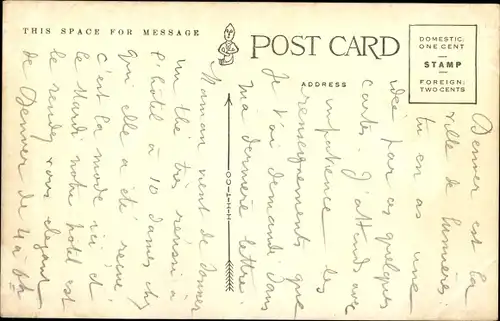 THIS SPACE FOR MESSAGE
POST CARD
ADDRESS
DOMESTIC:
ONE CENT
STAMP
FOREIGN:
TWO CENTS
Denver est la
ville de lumière.
tu en as une
idée par ces quelques
cartes. J'attends avec
impatience les
renseignements que
Je t'ai demandé dans
ma dernière lettre.
Maman vient de donner
un thé très réussi à
l'hôtel à 10 dames chez
qui elle a été reçue.
c'est la mode ici et
le Mardi notre hotel est
le rendez vous elegant
de Denver de 4 à 6h